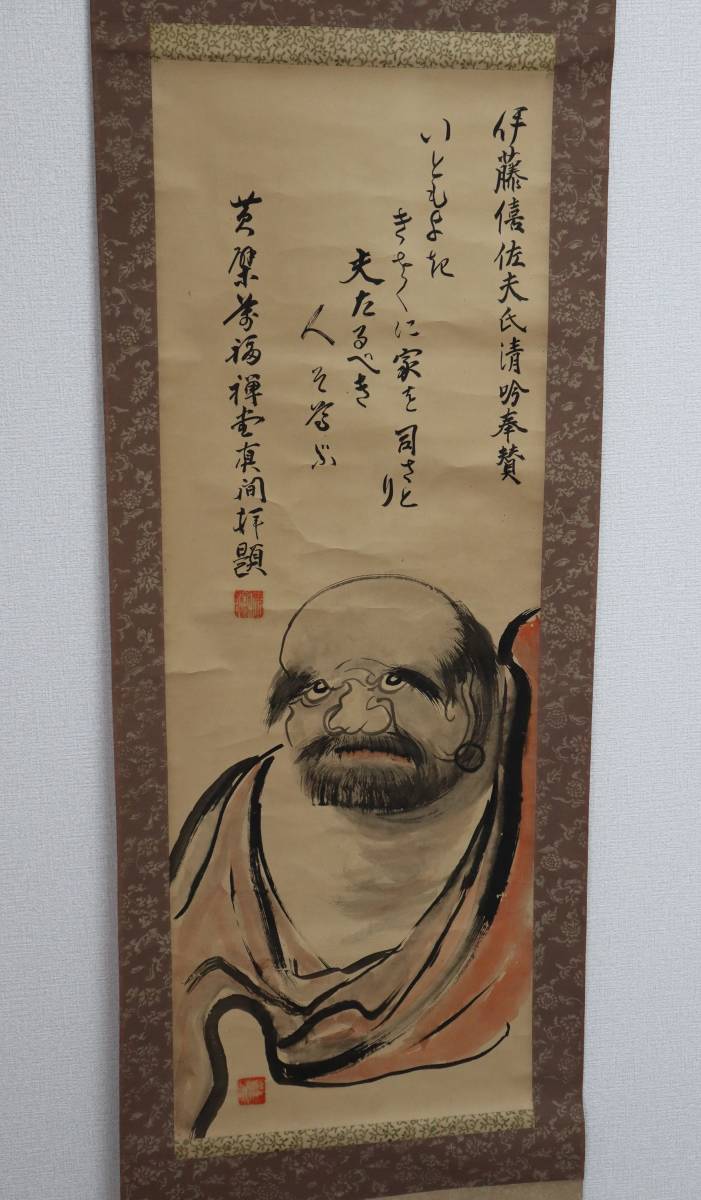 伊藤僖佐夫氏清吟奉賛
いともよき
きさくに家を司さと
り
夫たるべき
人そ尊ぶ
黄檗萬福禅堂真間拝題